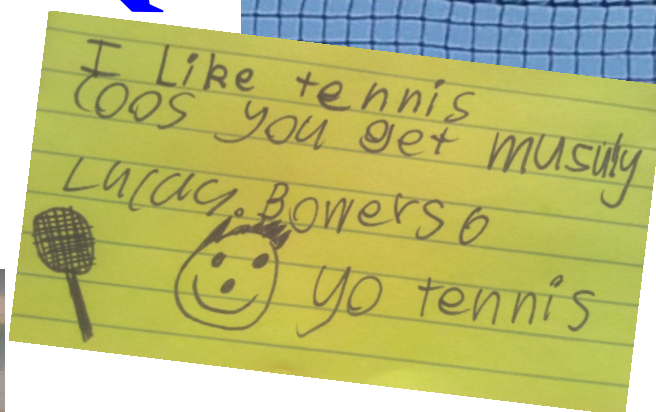 I Like tennis
COOS you get musuly
Lucas. Bowers 6
yo tennis